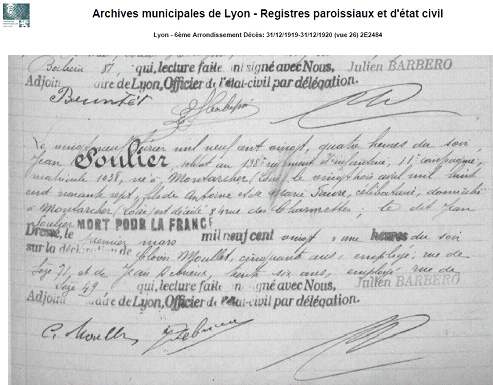 Archives municipales de Lyon - Registres paroissiaux et d'état civil
Lyon - 6ème Arrondissement Décès: 31/12/1919-31/12/1920 (vue 26) 2E2484
81, qui, lecture faite ont signé avec Nous, Julien BARBERO
Adjoint Maire de Lyon, Officier de l'état-civil par délégation.
Le vingt neuf février mil neuf cent vingt, quatre heures du soir,
Jean Soulier, soldat au 158e régiment d'infanterie, 11e compagnie,
matricule 1038, né à Montarcher, Loire, le vingt trois avril mil huit
cent nonante sept, fils de Antoine et de Marie Faure, célibataire, domicilié
à Montarcher, Loire, est décédé 34 rue des Charmettes, le dit Jean
Soulier MORT POUR LA FRANCE
Dressé, le premier mars mil neuf cent vingt, une heures du soir
sur la déclaration de Clovis Moullet, cinquante ans, employé, rue de
Sèze 71, et de Jean Debrieux, trente six ans, employé rue de
Sèze 49, qui, lecture faite ont signé avec Nous, Julien BARBERO
Adjoint Maire de Lyon, Officier de l'état-civil par délégation.
C. Moullet